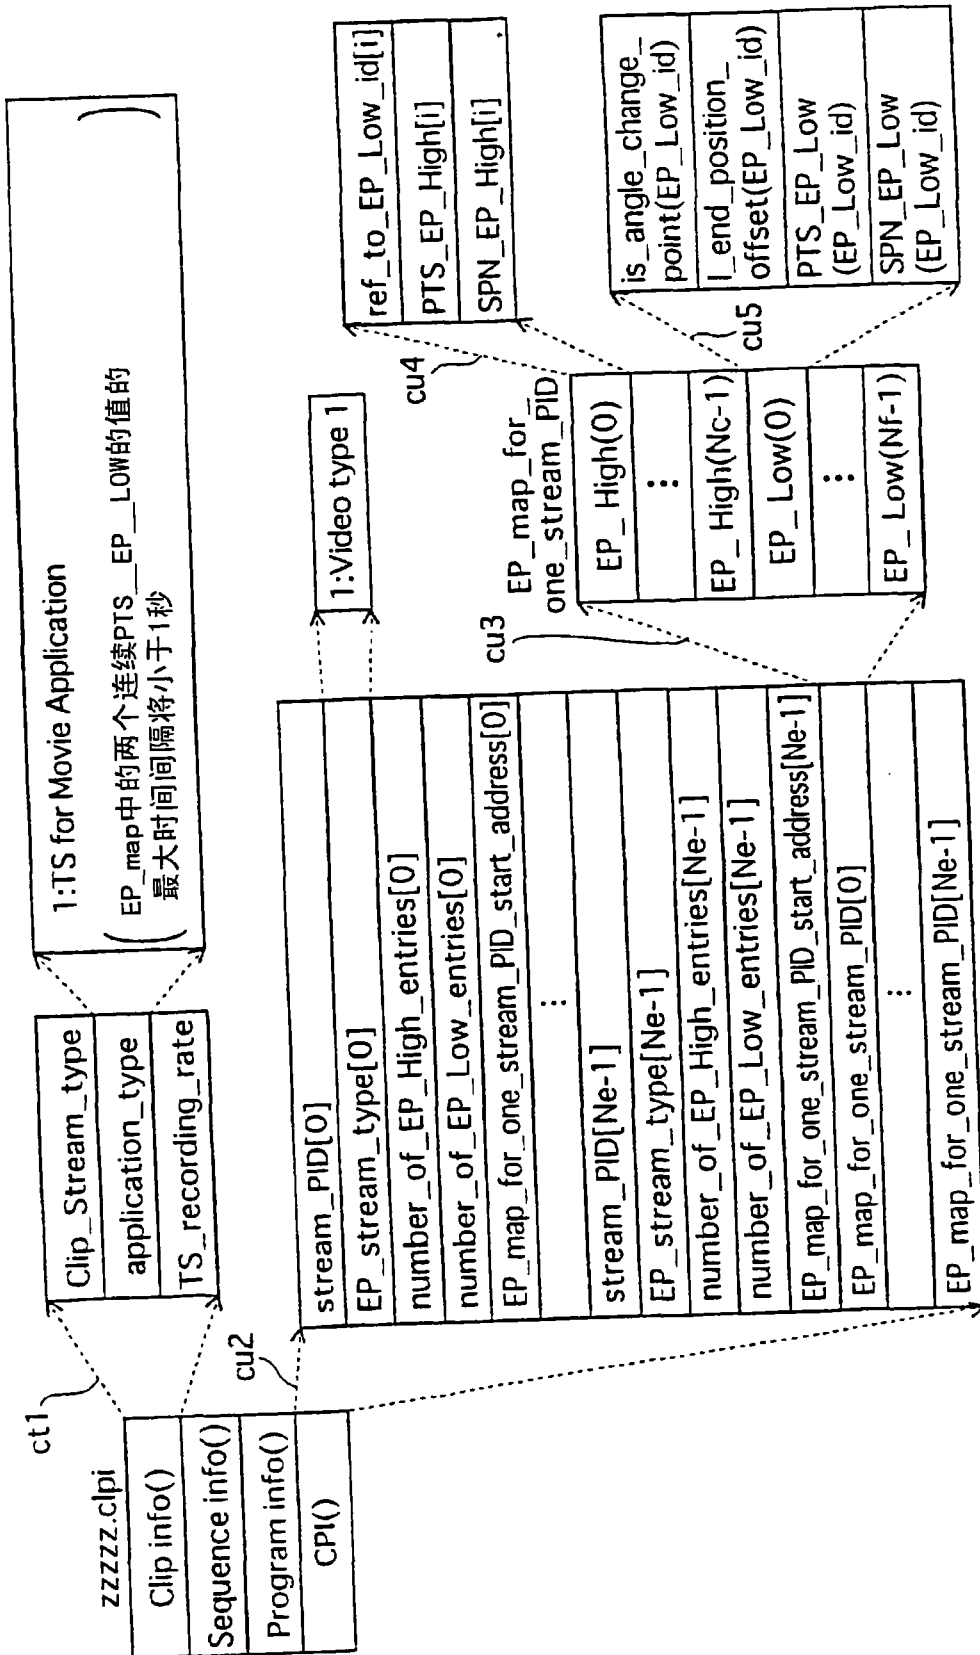 zzzzz.clpi
Clip info()
Sequence info()
Program info()
CPI()
ct1
Clip_Stream_type
application_type
TS_recording_rate
1:TS for Movie Application
(EP_map中的两个连续PTS__EP__LOW的值的
最大时间间隔将小于1秒)
cu2
stream_PID[0]
EP_stream_type[0]
number_of_EP_High_entries[0]
number_of_EP_Low_entries[0]
EP_map_for_one_stream_PID_start_address[0]
⋮
stream_PID[Ne-1]
EP_stream_type[Ne-1]
number_of_EP_High_entries[Ne-1]
number_of_EP_Low_entries[Ne-1]
EP_map_for_one_stream_PID_start_address[Ne-1]
EP_map_for_one_stream_PID[0]
⋮
EP_map_for_one_stream_PID[Ne-1]
1:Video type 1
cu3
EP_map_for_
one_stream_PID
EP_High(0)
⋮
EP_High(Nc-1)
EP_Low(0)
⋮
EP_Low(Nf-1)
cu4
ref_to_EP_Low_id[i]
PTS_EP_High[i]
SPN_EP_High[i]
cu5
is_angle_change_
point(EP_Low_id)
I_end_position_
offset(EP_Low_id)
PTS_EP_Low
(EP_Low_id)
SPN_EP_Low
(EP_Low_id)